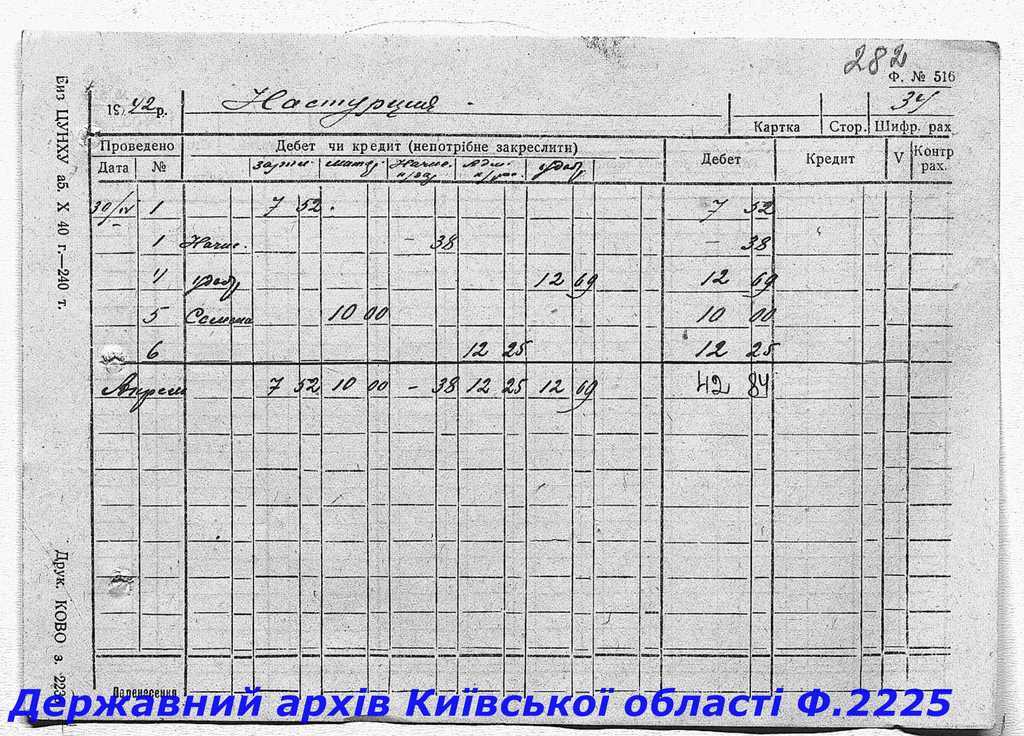 282
Ф. № 516
34
1942 р. Настурция
Картка Стор. Шифр. рах
Проведено Дебет чи кредит (непотрібне закреслити) Дебет Кредит V Контр рах.
Дата № матер Начис. Адм. удобр
30/IV 1 7 52 7 52
1 Начис. – 38 – 38
4 удобр 12 69 12 69
5 Семена 10 00 10 00
6 12 25 12 25
Апрель 7 52 10 00 – 38 12 25 12 69 42 84
Перенесення
Биз ЦУНХУ аб. X 40 г.—240 т.
Друк. КОВО з. 223
Державний архів Київської області Ф.2225